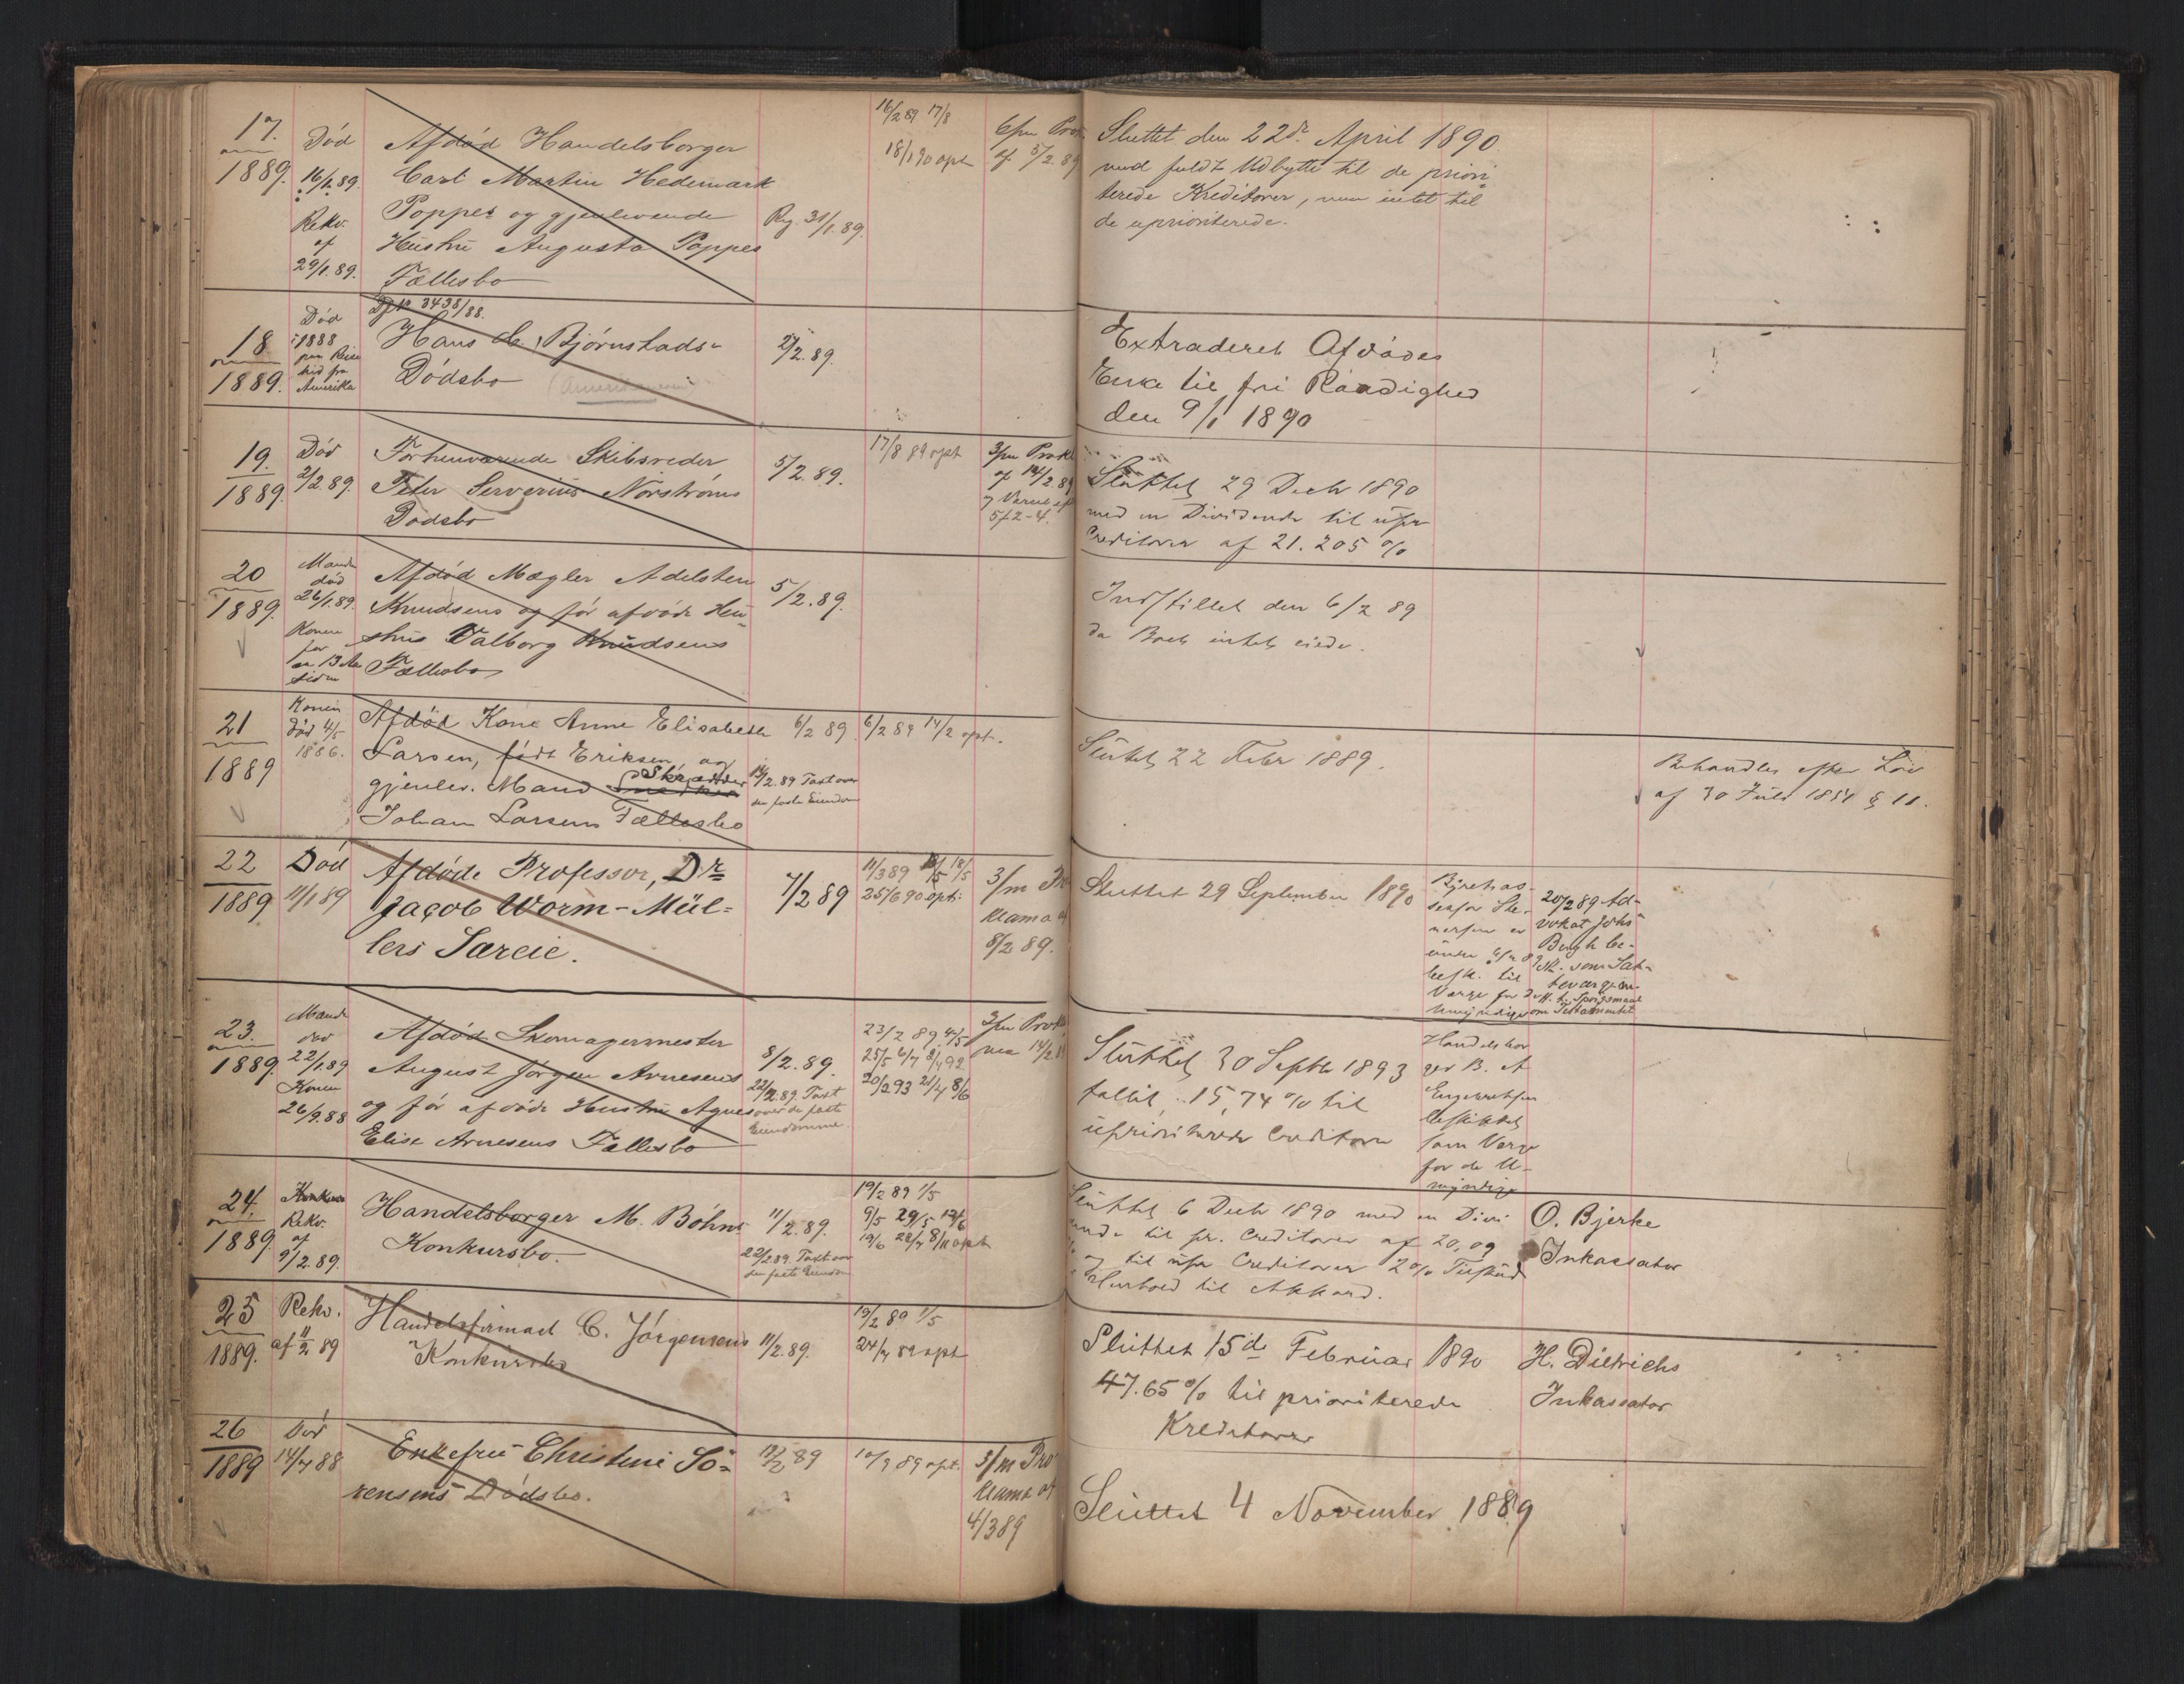 17.
1889.
Død
16/1.89.
Rekv.
af
29/1.89.
Afdød Handelsborger
Carl Martin Hedemark
Poppes og gjenlevende
Hustru Augusta Poppes
Fællesbo
Reg. 31/1.89.
16/2 89 17/8
18/1 90 opt
6/m Prok.
af 5/2.89
Sluttet den 22de April 1890
med fuldt Udbytte til de priori
terede Kreditorer, men intet til
de uprioriterede.
18
1889.
Død
1888
paa Reise
hid fra
Amerika
3438/88.
Hans Bjørnstads
Dødsbo
2/2.89.
Extraderet Afdødes
Enke til fri Raadighed
den 9/1 1890
19.
1889
Død
2/2.89.
Forhenværende Skibsreder
Peter Severius Norstrøms
Dødsbo
5/2.89.
17/8 89 opt
3/m Prokl
af 14/2.89
Sluttet 29 Decbr 1890
med en Dividende til upr.
Creditorer af 21.205 %
20
1889.
Mand
død
26/1.89.
Konen
for
ca 13 Aar
siden
Afdød Mægler Adelsten
Knudsens og før afdøde Hu
strus Valborg Knudsens
Fællesbo
5/2.89.
Indstillet den 6/2 89
da Boet intet eiede.
21
1889
Konen
død 4/5
1886.
Afdød Kone Anne Elisabeth
Larsen, født Eriksen, og
gjenlev. Mand Skrædder
Johan Larsens Fællesbo
6/2 89
6/2 89 14/2 opt.
14/2.89 Taxt over
den faste Eiendom
Sluttet 22 Febr 1889.
Behandles efter Lov
af 30 Juli 1851 § 11.
22
1889
Død
11/1 89
Afdøde Professor, Dr
Jacob Worm-Mül=
lers Særeie.
7/2 89
11/3 89 18/5
25/6 90 opt:
3/m Pro
klama af
8/2 89.
Sluttet 29 September 1890
20/2 89 Ad-
vokat Johs
Bergh be-
sk. som Sæt-
teværge an-
Spørgsmaal
om Testamentet
23.
1889.
Mand
død
22/1.89
Konen
26/9.88
Afdød Skomagermester
August Jørgen Arnesens
og før afdøde Hustru Agnes
Elise Arnesens Fællesbo
8/2.89.
22/2.89. Taxt
over de faste
Eiendomme.
23/2 89 4/5
25/5 6/7 8/4 92
20/2 93 21/4 8/6
3/m Prok
14/2.8
Sluttet 30 Septbr 1893
15,74 % til
uprioriterede Creditorer
Handelsbor
ger B. A
beskikket
som Værge
for de U-
myndige
24.
1889
Konkurs
Rekv.
af
9/2.89.
Handelsborger M. Bøhns
Konkursbo.
11/2.89.
22/2 89. Taxt over
den faste Eiendom
19/2 89 1/5
9/5 29/5 13/6
19/6 22/7 8/11 opt
Sluttet 6 Decbr 1890 med en Divi
dende til pr. Creditorer af 20,09
% og til upr Creditorer 2 % Tilskud
i Henhold til Akkord.
O. Bjerke
Inkassator
25
1889.
Rekv.
af 11/2 89
Handelsfirmaet C. Jørgensens
Konkursbo
11/2.89.
19/2 89 1/5
24/7 89 opt
Sluttet 15de Februar 1890
47.65 % til prioriterede
Kreditorer
H. Dietrichs
Inkassator
26
1889
Død
14/7 88
Enkefru Christine Sö=
rensens Dødsbo.
12/2 89
10/9 89 opt.
3/m Pro
klama af
4/3 89
Sluttet 4 November 1889